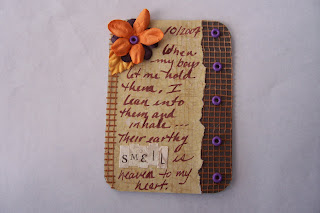 10/2007
When
my boys
let me hold
them, I
lean into
them and
inhale...
Their earthy
smell is
heaven to my
heart.